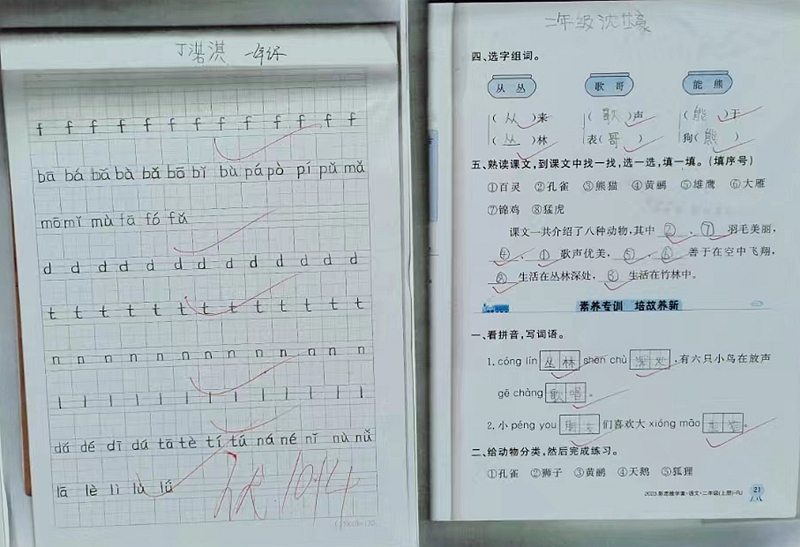 丁常淇 一年级
f f f f f f f f f f f f f
bā bá bǎ bà bǎ bō bǐ bù pá pò pí pǔ mǎ
mō mǐ mù fā fó fǔ
d d d d d d d d d d d d d
t t t t t t t t t t t t t
n n n n n n n n n n n n
l l l l l l l l l l l l
dá dé dī dú tā tè tí tú ná né nǐ nù nǔ
lā lè lì lù lǘ
优 10.14
二年级 沈
四、选字组词。
从 丛 歌 哥 能 熊
(从)来 (歌)声 (能)干
(丛)林 表(哥) 狗(熊)
五、熟读课文,到课文中找一找,选一选,填一填。(填序号)
①百灵 ②孔雀 ③熊猫 ④黄鹂 ⑤雄鹰 ⑥大雁
⑦锦鸡 ⑧猛虎
课文一共介绍了八种动物,其中 ② 、 ⑦ 羽毛美丽,
④ 、 ① 歌声优美, ⑤ 、 ⑥ 善于在空中飞翔,
⑧ 生活在丛林深处, ③ 生活在竹林中。
素养专训 培故养新
一、看拼音,写词语。
1. cóng lín 丛林 shēn chù 深处 ,有六只小鸟在放声
gē chàng 歌唱 。
2. 小 péng you 朋友 们喜欢大 xióng māo 。
二、给动物分类,然后完成练习。
①孔雀 ②狮子 ③黄鹂 ④天鹅 ⑤狐狸
2023新思维学案·语文·二年级(上册)-RJ 21